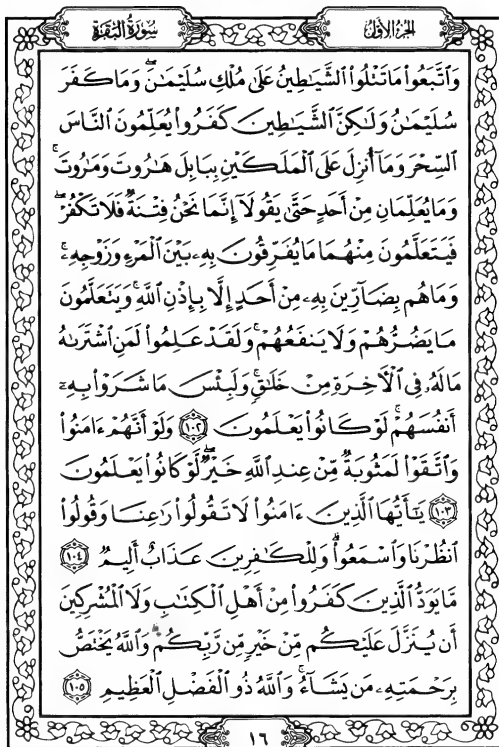 سُورَةُ الْبَقَرَةِ
الجُزْءُ الأَوَّلُ
وَاتَّبَعُوا۟ مَا تَتْلُوا۟ الشَّيَاطِينُ عَلَىٰ مُلْكِ سُلَيْمَٰنَ ۖ وَمَا كَفَرَ
سُلَيْمَٰنُ وَلَٰكِنَّ الشَّيَاطِينَ كَفَرُوا۟ يُعَلِّمُونَ النَّاسَ
السِّحْرَ وَمَآ أُنزِلَ عَلَى الْمَلَكَيْنِ بِبَابِلَ هَٰرُوتَ وَمَٰرُوتَ ۚ
وَمَا يُعَلِّمَانِ مِنْ أَحَدٍ حَتَّىٰ يَقُولَآ إِنَّمَا نَحْنُ فِتْنَةٌ فَلَا تَكْفُرْ ۖ
فَيَتَعَلَّمُونَ مِنْهُمَا مَا يُفَرِّقُونَ بِهِۦ بَيْنَ الْمَرْءِ وَزَوْجِهِۦ ۚ
وَمَا هُم بِضَآرِّينَ بِهِۦ مِنْ أَحَدٍ إِلَّا بِإِذْنِ اللَّهِ ۚ وَيَتَعَلَّمُونَ
مَا يَضُرُّهُمْ وَلَا يَنفَعُهُمْ ۚ وَلَقَدْ عَلِمُوا۟ لَمَنِ اشْتَرَىٰهُ
مَا لَهُۥ فِى الْـَٔاخِرَةِ مِنْ خَلَٰقٍ ۚ وَلَبِئْسَ مَا شَرَوْا۟ بِهِۦٓ
أَنفُسَهُمْ ۚ لَوْ كَانُوا۟ يَعْلَمُونَ ١٠٢ وَلَوْ أَنَّهُمْ ءَامَنُوا۟
وَاتَّقَوْا۟ لَمَثُوبَةٌ مِّنْ عِندِ اللَّهِ خَيْرٌ ۖ لَّوْ كَانُوا۟ يَعْلَمُونَ
١٠٣ يَٰٓأَيُّهَا الَّذِينَ ءَامَنُوا۟ لَا تَقُولُوا۟ رَٰعِنَا وَقُولُوا۟
انظُرْنَا وَاسْمَعُوا۟ ۗ وَلِلْكَٰفِرِينَ عَذَابٌ أَلِيمٌ ١٠٤
مَّا يَوَدُّ الَّذِينَ كَفَرُوا۟ مِنْ أَهْلِ الْكِتَٰبِ وَلَا الْمُشْرِكِينَ
أَن يُنَزَّلَ عَلَيْكُم مِّنْ خَيْرٍ مِّن رَّبِّكُمْ ۗ وَاللَّهُ يَخْتَصُّ
بِرَحْمَتِهِۦ مَن يَشَآءُ ۚ وَاللَّهُ ذُو الْفَضْلِ الْعَظِيمِ ١٠٥
١٦